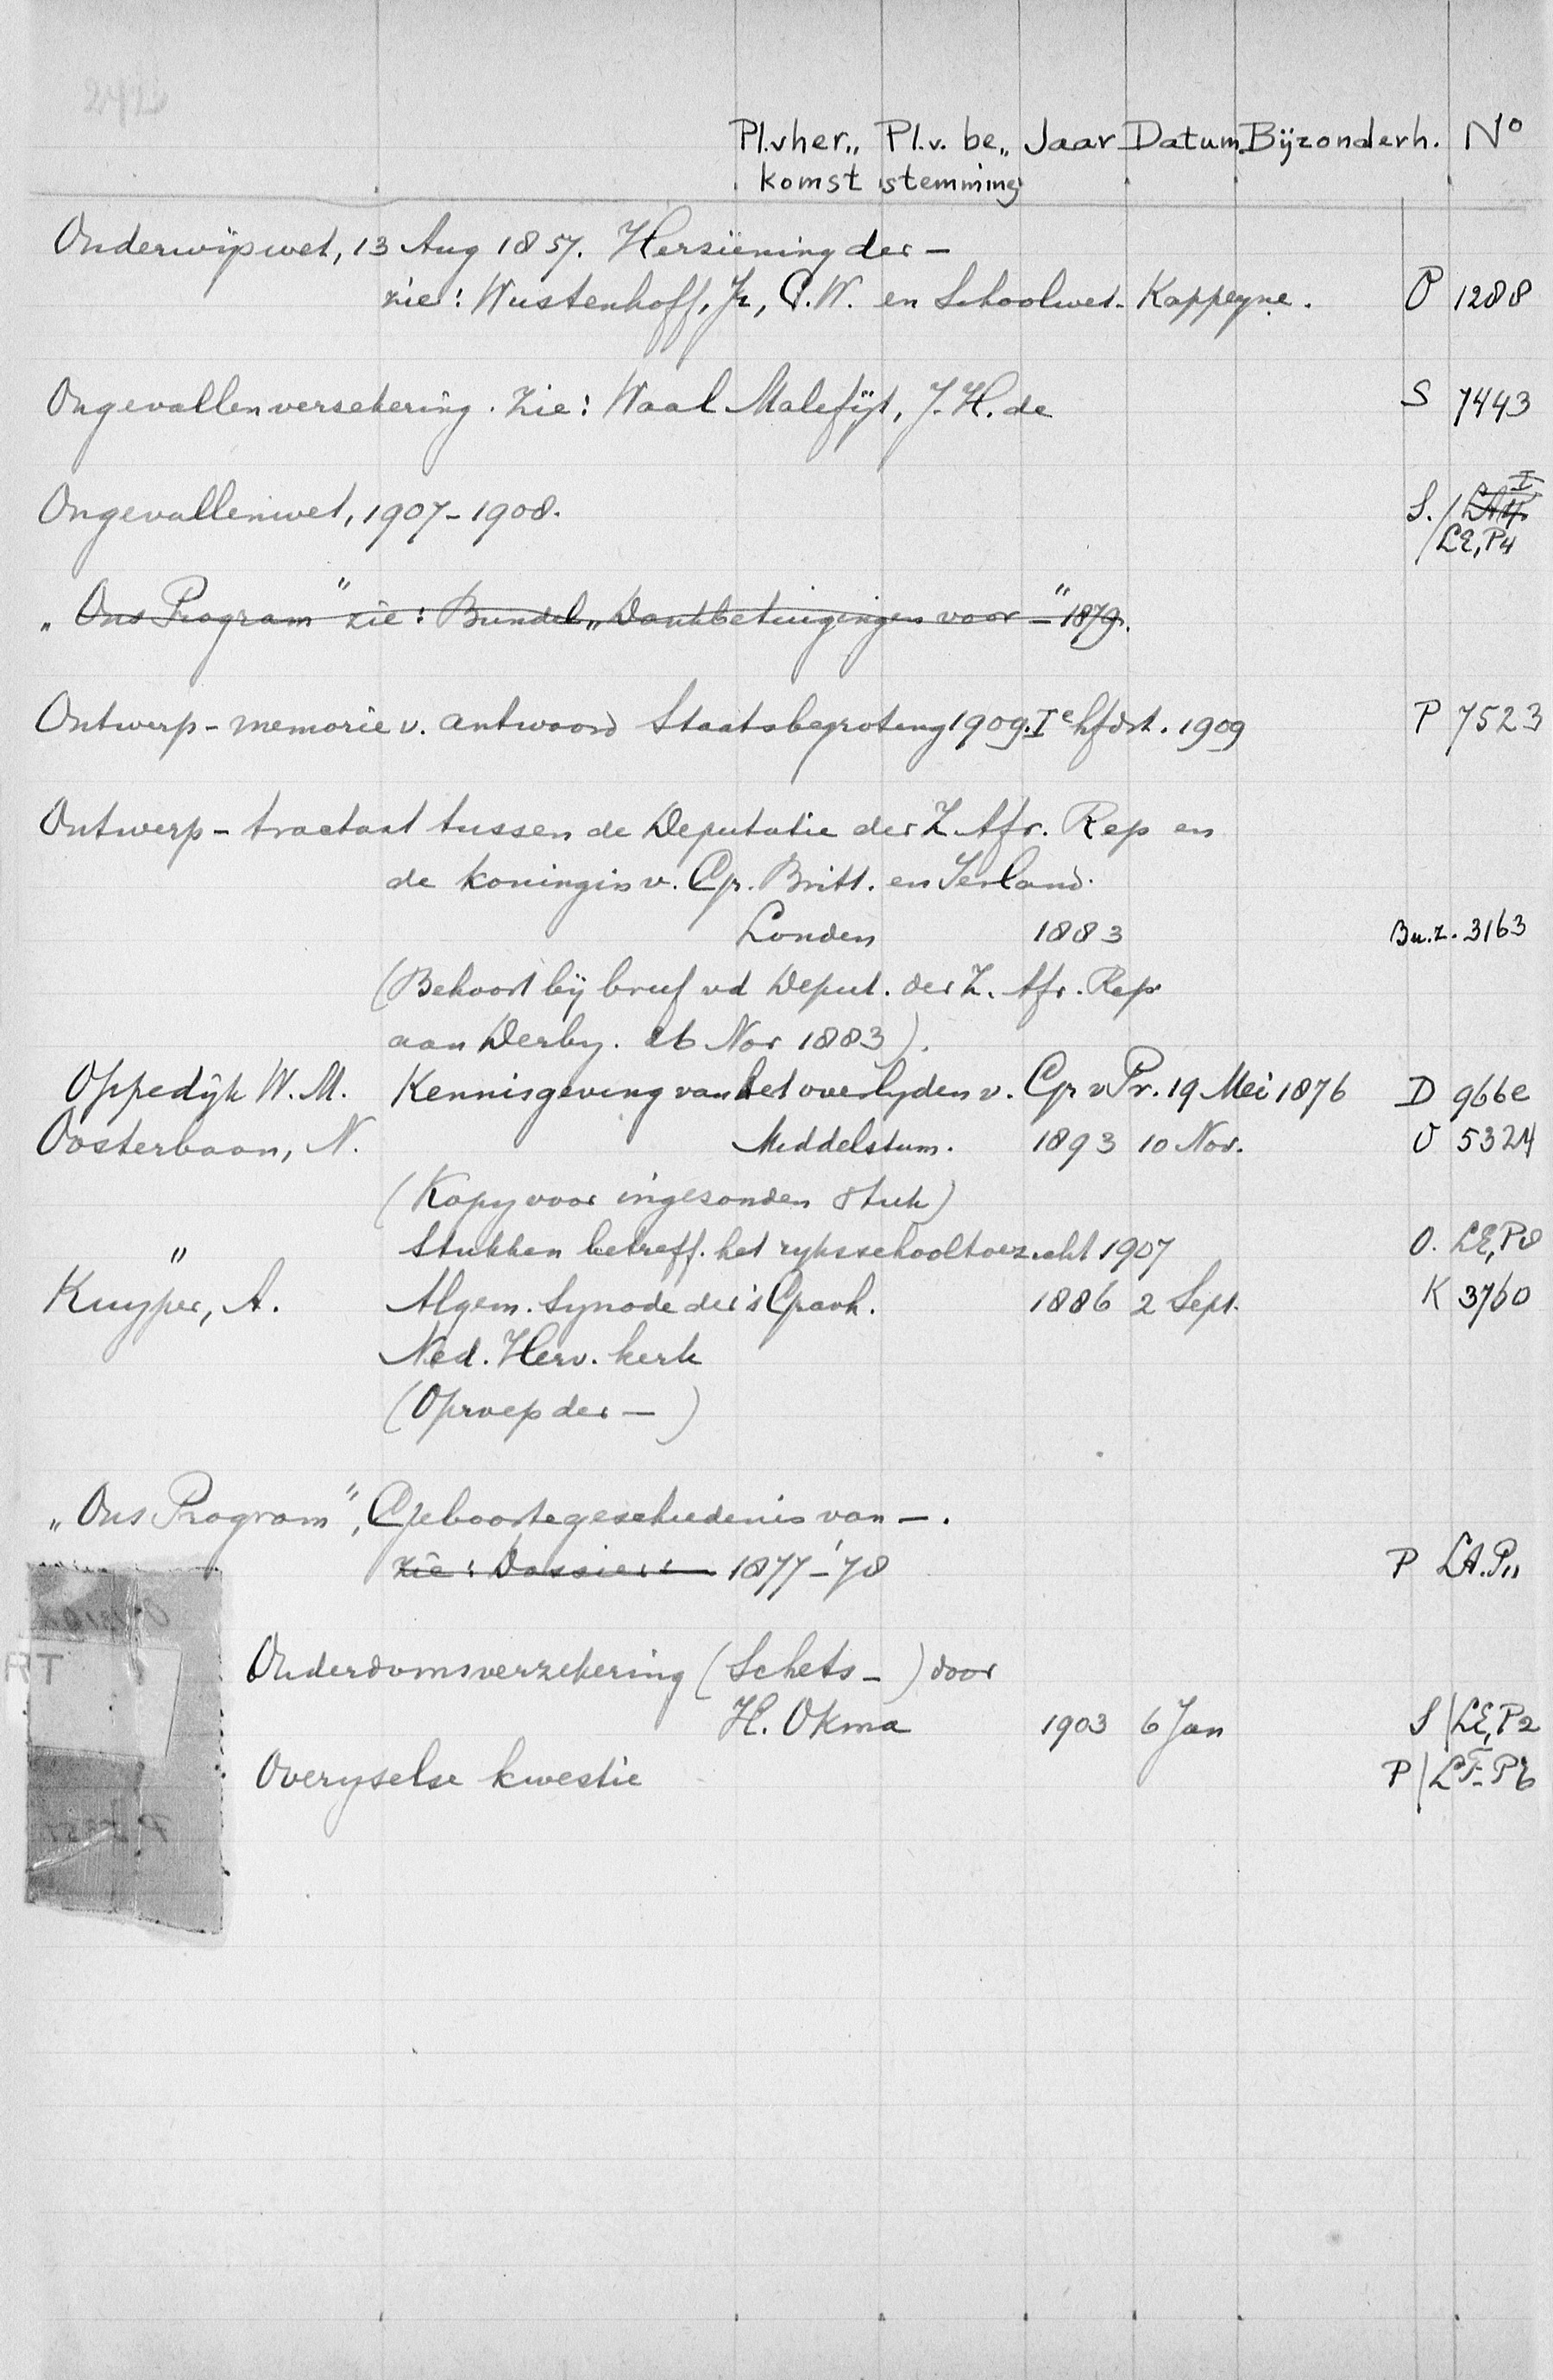 Pl.v her„ Pl.v. be„ Jaar Datum Bijzonderh. No
komst stemming
Onderwijswet, 13 Aug 1857. Hersiening der —
zie: Wustenhoff, Jr, C.W. en Schoolwet-Kappeyne. O 1288
Ongevallenversekering. Zie: Waal Malefijt, J.H. de S 7443
Ongevallenwet, 1907-1908. S./
LE, P4
„Ons Program" zie: Bundel „Dankbetuigingen voor —" 1879.
Ontwerp-memorie v. antwoord Staatsbegroting 1909. Ie hfdst. 1909 P 7523
Ontwerp-tractaat tussen de Deputatie der Z. Afr. Rep en
de koningin v. Gr. Britt. en Ierland.
Londen 1883 Bu.z. 3163
(Behoort bij brief vd Deput. der Z. Afr. Rep
aan Derby. 26 Nov 1883).
Oppedijk W.M. Kennisgeving van het overlyden v. Gr v Pr. 19 Mei 1876 D 966e
Oosterbaan, N. Middelstum. 1893 10 Nov. O 5324
(Kopy voor ingesonden stuk)
" Stukken betreff. het ryksschooltoezicht 1907 O. LE, P8
Kuyper, A. Algem. Synode der 's Gravh. 1886 2 Sept. K 3760
Ned. Herv. kerk
(Oproep der —)
„Ons Program", Geboortegeschiedenis van —.
zie: Dossier: — 1877-'78 P LA. P11
Ouderdomsverzekering (Schets —) door
H. Okma 1903 6 Jan S/LE, P2
Overyselse kwestie P/LF-P6